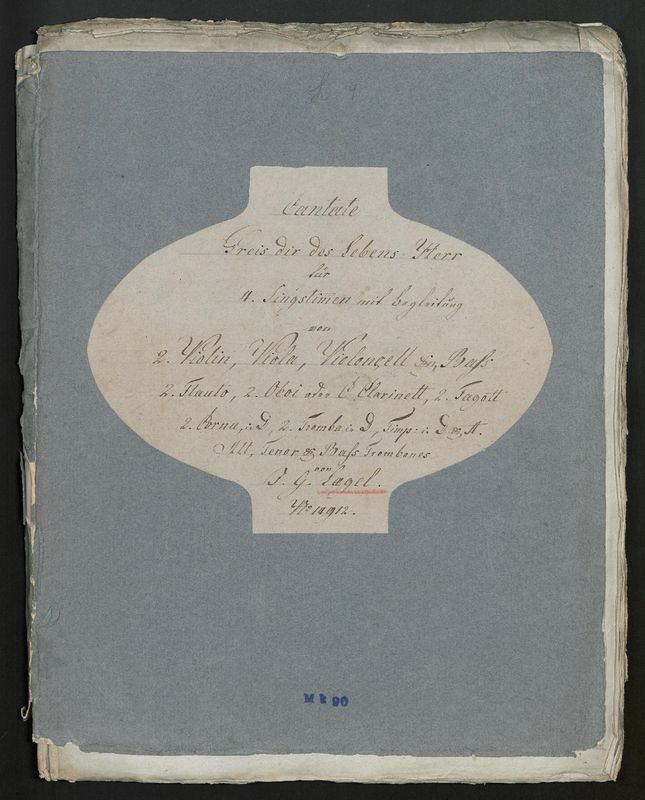 Cantate
Preis dir des Lebens Herr
für
4. Singstimen mit begleitung
von
2. Violin, Viola, Violoncell & Bass
2. Flauto, 2. Oboi oder C Clarinett, 2. Fagott
2. Cornu, in D, 2. Tromba in D, Timp: in D & A.
Alt, Tenor & Bass Trombones
von
J. G. Lägel.
No
M k 90